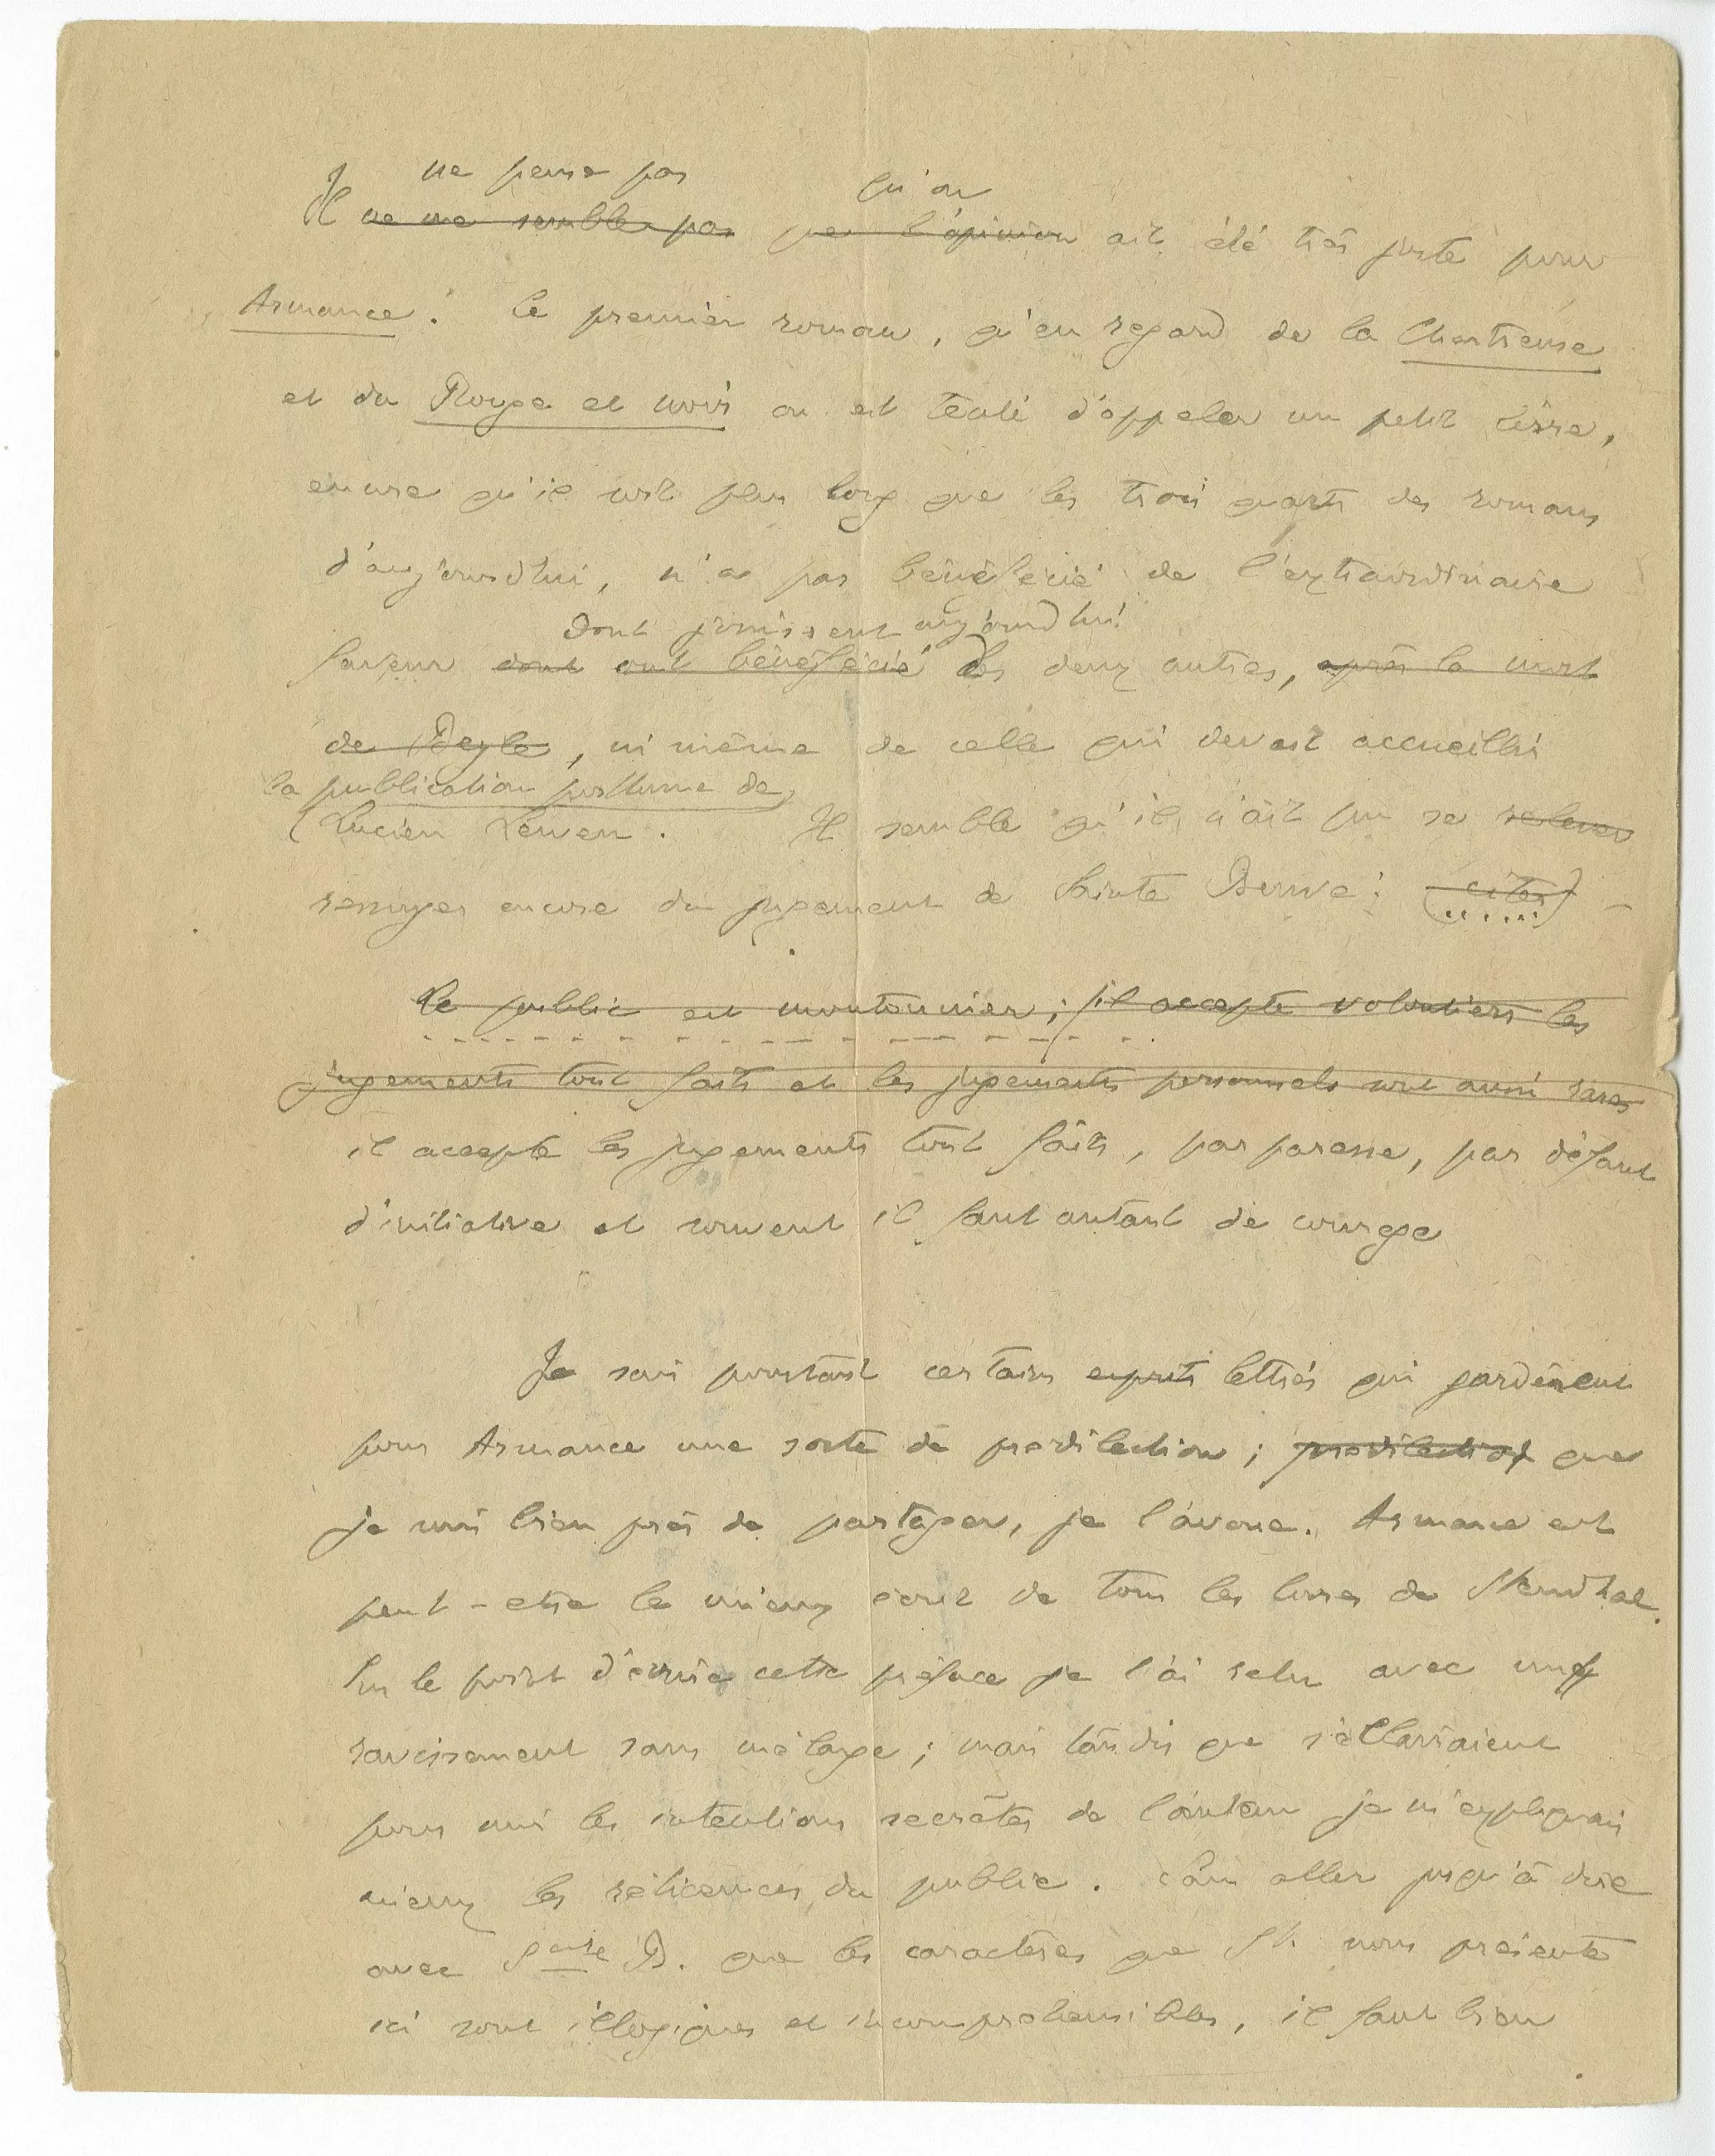 Je ne pense pas qu'on
Il ne me semble pas que l'opinion ait été très juste pour
Armance. Ce premier roman, qu'en regard de la Chartreuse
et du Rouge et noir on est tenté d'appeler un petit livre,
encore qu'il soit plus long que les trois quarts des romans
d'aujourd'hui, n'a pas bénéficié de l'extraordinaire
dont jouissent aujourd'hui
faveur dont ont bénéficié les deux autres, après la mort
de Beyle, ni même de celle qui devait accueillir
la publication posthume de
Lucien Lewen. Il semble qu'il n'ait pu se relever
essuyer encore du jugement de Sainte Beuve : (citer)
Le public est moutonnier ; il accepte volontiers les
jugements tout faits et les jugements personnels sont aussi rares
il accepte les jugements tout faits, par paresse, par défaut
d'initiative et souvent il faut autant de courage
Je sais pourtant certains esprits lettrés qui gardèrent
pour Armance une sorte de prédilection ; prédilection que
je suis bien près de partager, je l'avoue. Armance est
peut-etre le mieux écrit de tous les livres de Stendhal.
Sur le point d'écrire cette préface je l'ai relu avec un
ravissement sans mélange ; mais tandis que s'éclairaient
pour moi les intentions secrètes de l'auteur je m'expliquais
mieux les réticences du public. Sans aller jusqu'à dire
avec Ste B. que les caractères que St. nous présente
ici sont illogiques et incompréhensibles, il faut bien